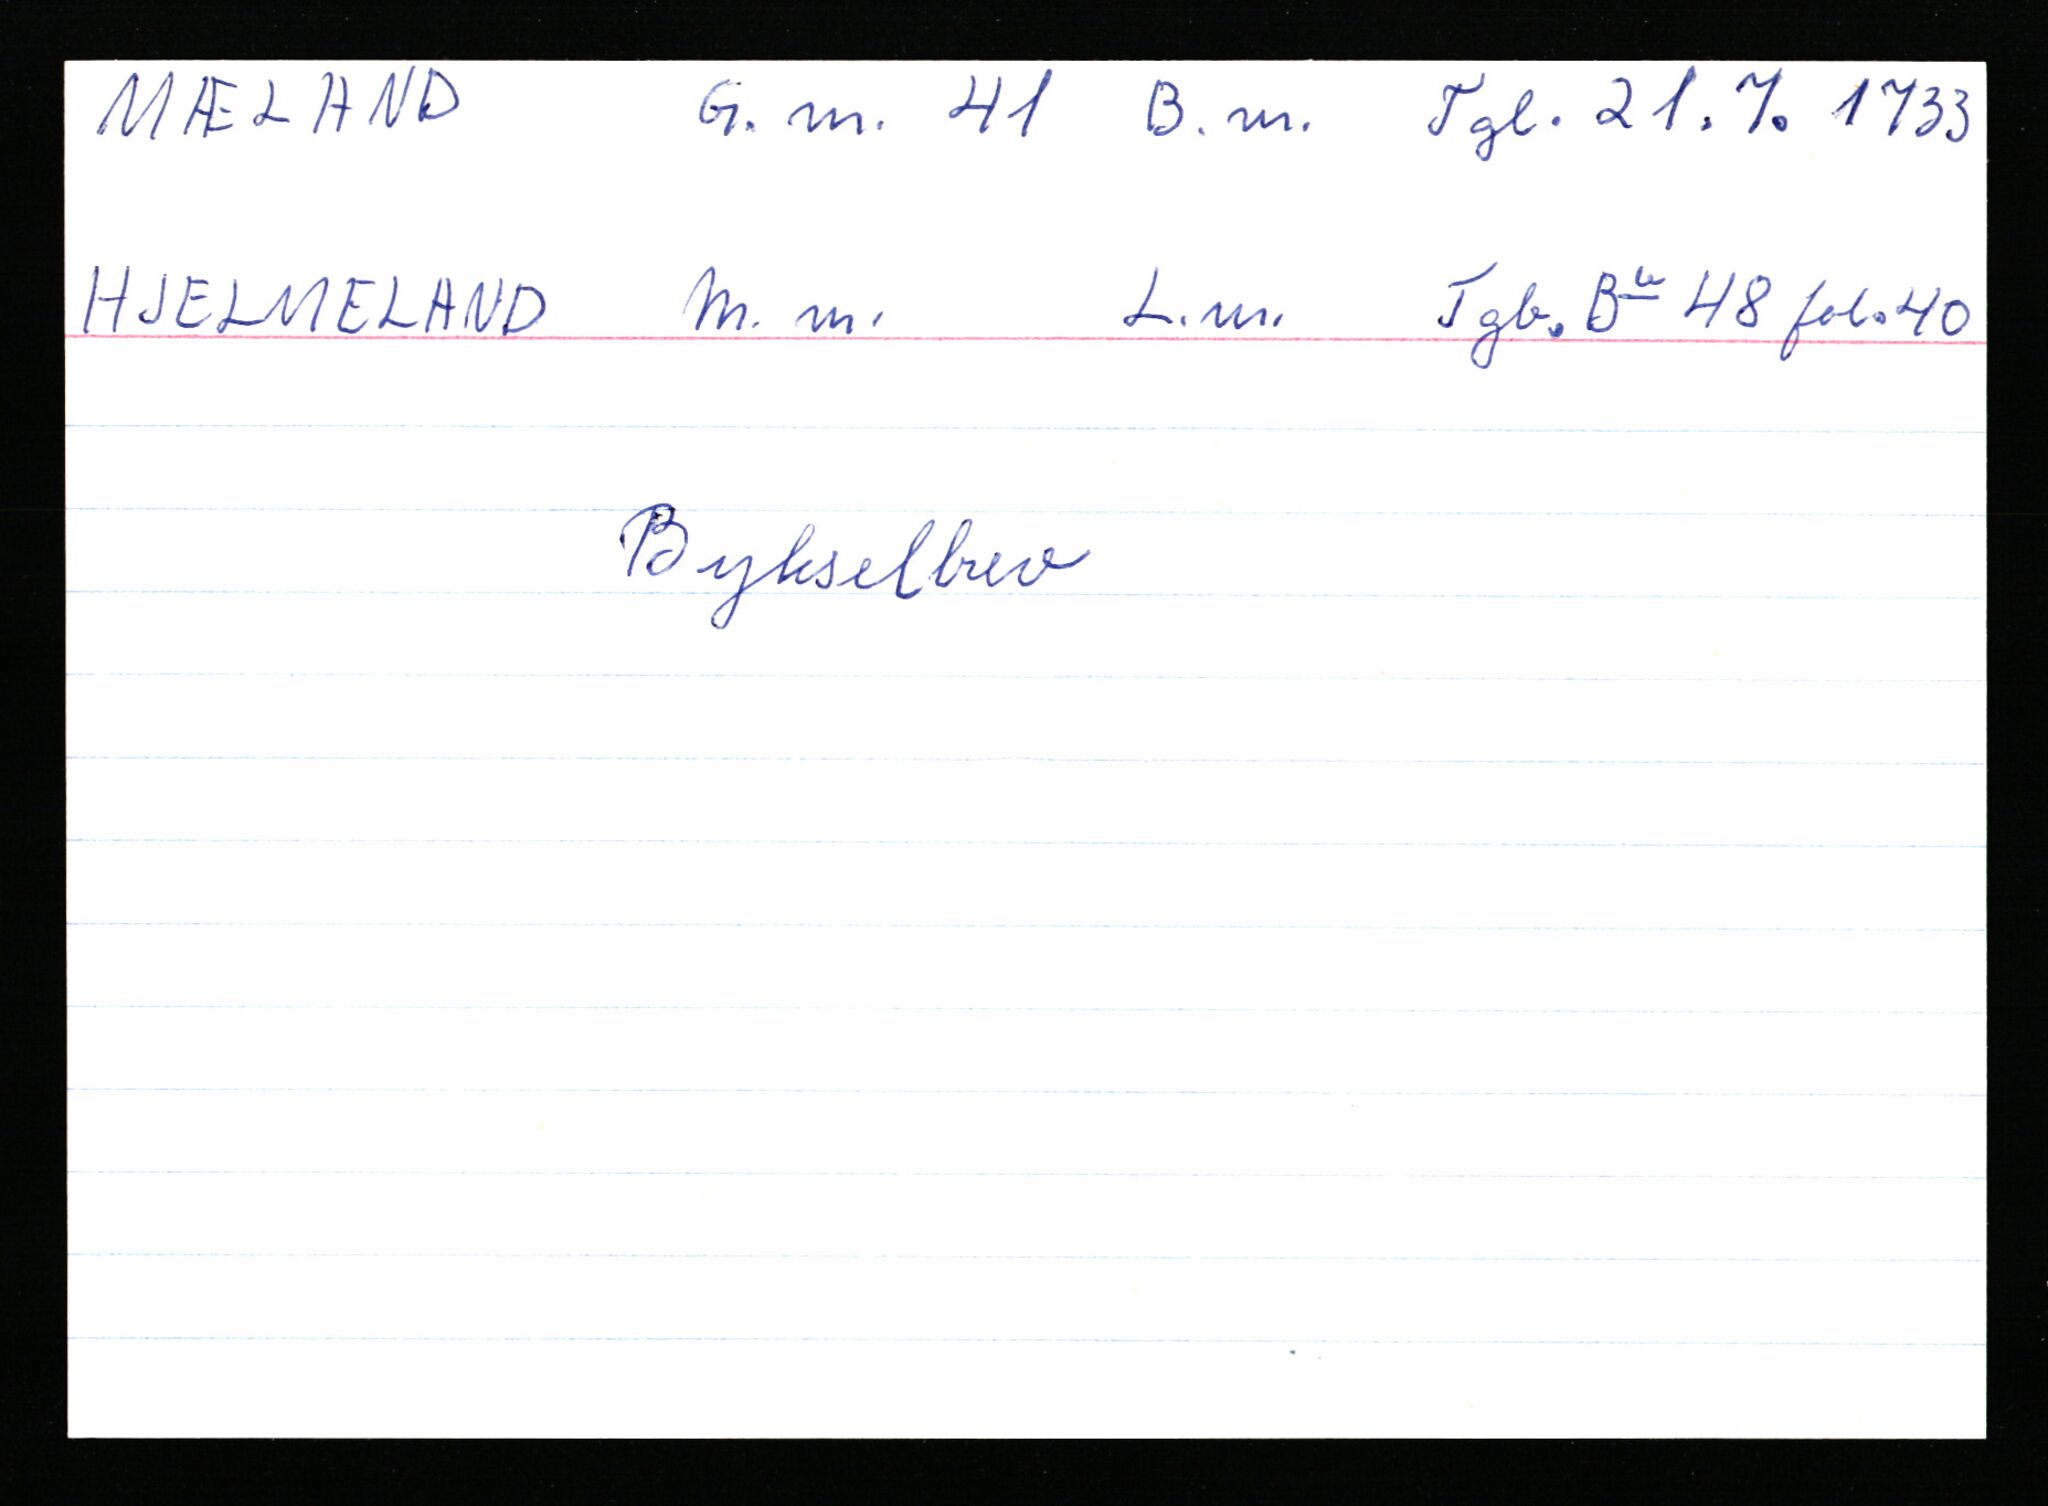 MÆLAND G. m. 41 B. m. Tgl. 21. 7. 1733
HJELMELAND M. m. L. m. Tgb. 48 fol. 40
Bykselbrev